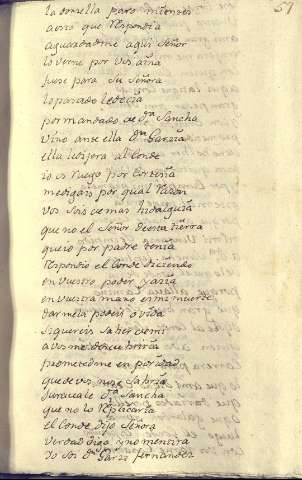 57
la donzella paro mientes
a esso que respondia
aguardadme aqui Señor
lo verne por vos aina
fuese para su Señora
lo passado le decia
por mandado de Dª Sancha
vino ante ella Dn Garzia
ella le dijera al Conde
io os ruego por cortesia
me digais por qual razon
vos sois de mas hidalguia
que no el Señor de esta tierra
que io por padre tenia
respondio el Conde diciendo
en vuestro poder yazia
en vuestra mano es mi muerte
darmela podeis o vida
si quereis saber de mi
a vos me descubriria
prometedme en poridad
que de vos no se sabria
juravale Dª Sancha
que no lo replicaria
el Conde dijo Señora
verdad digo y no mentira
Io soi Dn Garzi fernandez